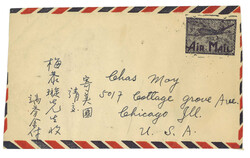 AIR MAIL
Chas Moy
5017 Cottage Grove Ave.
Chicago Ill.
U. S. A.
寄美國
梅
先生收